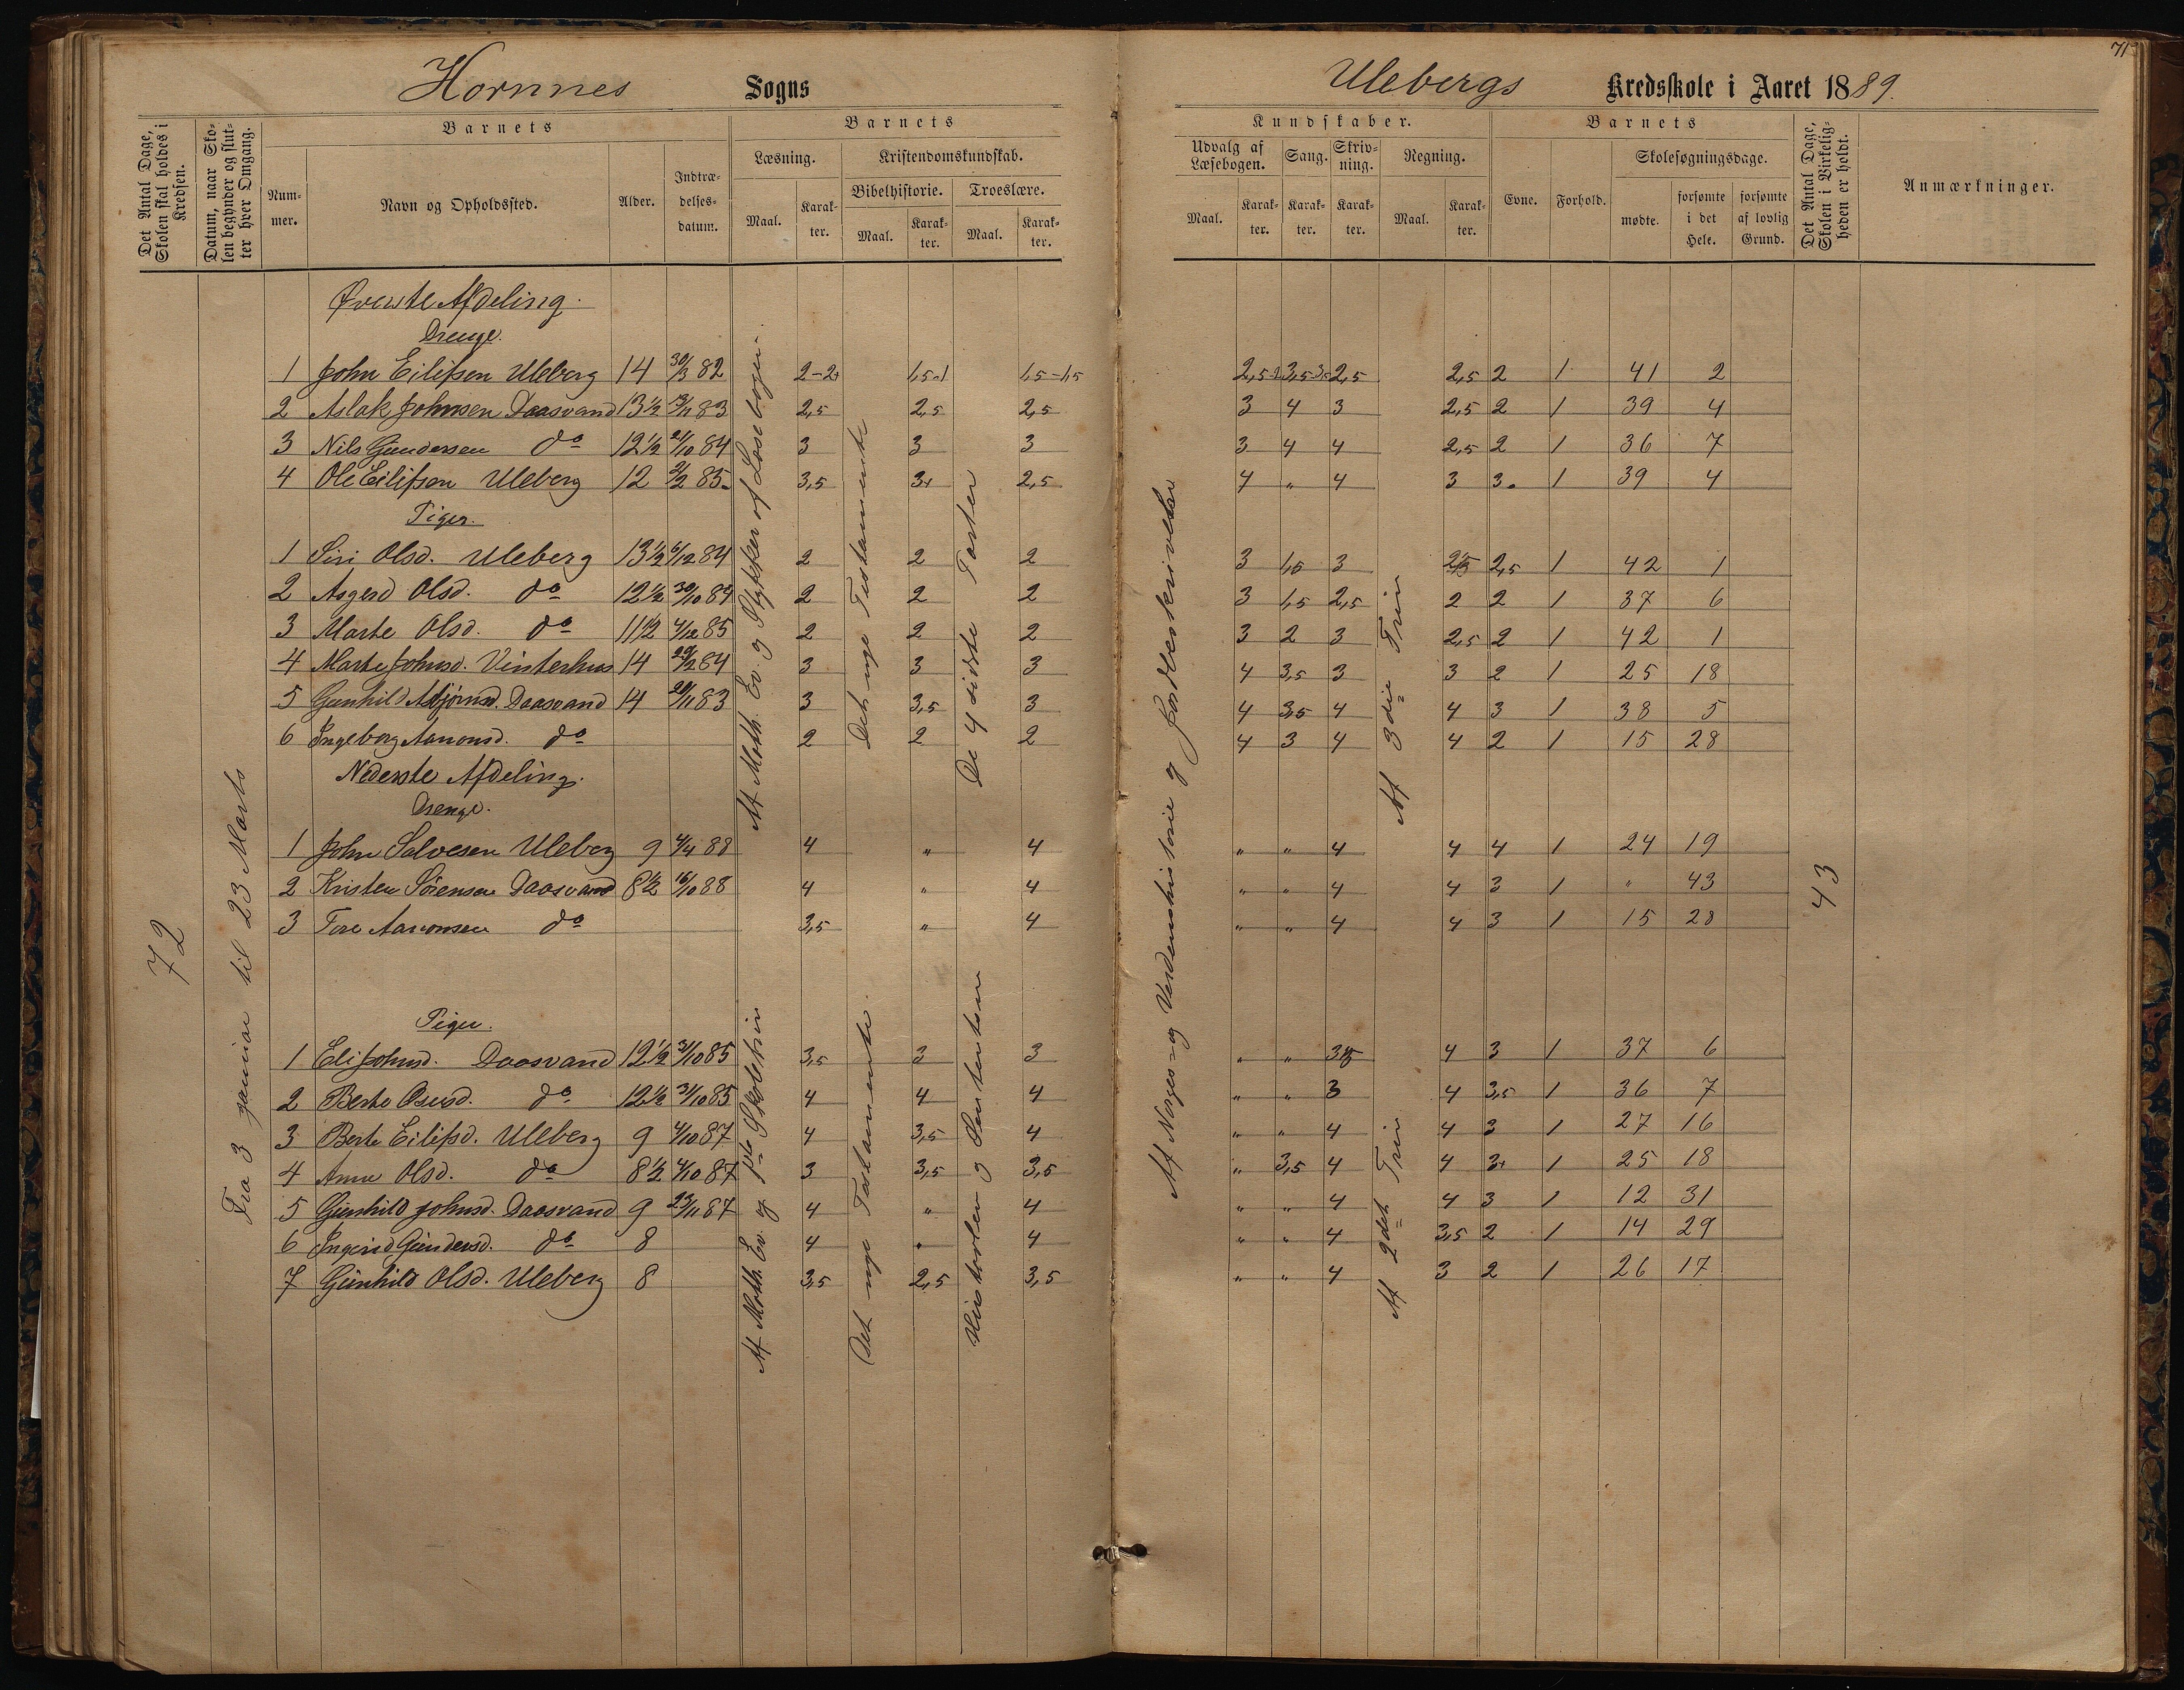 71
Hornnes Sogns
Ulebergs Kredsskole i Aaret 1889.
Det Antal Dage, Skolen skal holdes i Kredsen.
Datum, naar Skolen begynder og slutter hver Omgang.
Barnets
Nummer.
Navn og Opholdssted.
Alder.
Indtrædelsesdatum.
Barnets
Læsning.
Maal.
Karakter.
Kristendomskundskab.
Bibelhistorie.
Maal.
Karakter.
Troeslære.
Maal.
Karakter.
Kundskaber.
Udvalg af Læsebogen.
Maal.
Karakter.
Sang.
Karakter.
Skrivning.
Karakter.
Regning.
Maal.
Karakter.
Barnets
Evne.
Forhold.
Skolesøgningsdage.
mødte.
forsømte i det Hele.
forsømte af lovlig Grund.
Det Antal Dage, Skolen i Virkeligheden er holdt.
Anmærkninger.
72
Fra 3 januar til 23 Marts
Øverste Afdeling.
Drenge.
1 John Eilifsen Uleberg 14 30/3 82 2-2+ 1,5-1 1,5-1,5 2,5 3,5 2,5 2,5 2 1 41 2
2 Aslak Johnsen Daasvand 13½ 13/11 83 2,5 2,5 2,5 3 4 3 2,5 2 1 39 4
3 Nils Gundersen do 12½ 21/10 84 3 3 3 3 4 4 2,5 2 1 36 7
4 Ole Eilifsen Uleberg 12 2/2 85 3,5 3+ 2,5 4 " 4 3 3 1 39 4
Piger.
1 Siri Olsd. Uleberg 13½ 6/12 84 2 2 2 3 1,5 3 2,5 2,5 1 42 1
2 Asgerd Olsd. do 12½ 30/10 84 2 2 2 3 1,5 2,5 2 2 1 37 6
3 Marte Olsd. do 11½ 4/12 85 2 2 2 3 2 3 2,5 2 1 42 1
4 Marte Johnsd. Vinterhus 14 29/2 84 3 3 3 4 3,5 3 3 2 1 25 18
5 Gunhild Asbjørnsd. Daasvand 14 20/11 83 3 3,5 3 4 3,5 4 4 3 1 38 5
6 Ingeborg Aanonsd. do 2 2 2 4 3 4 4 2 1 15 28
Af Moth. Ev. og Stykker af Læsebogen.
Det nye Testamente
De 4 sidste Parter
Af Norges og Verdenshistorie og Jordbeskrivelse
Af 3die Trin
Nederste Afdeling.
Drenge.
1 John Salvesen Uleberg 9 4/4 88 4 " 4 " " 4 4 4 1 24 19
2 Kristen Sørensen Daasvand 8½ 16/10 88 4 " 4 " " 4 4 3 1 " 43
3 Tore Aanonsen do 3,5 " 4 " " 4 4 3 1 15 28
43
Piger.
1 Eli Johnsd. Daasvand 12½ 31/10 85 3,5 3 3 " " 3,5 4 3 1 37 6
2 Berte Osusd. do 12½ 31/10 85 4 4 4 " " 3 4 3,5 1 36 7
3 Berte Eilifsd. Uleberg 9 4/10 87 4 3,5 4 " " 4 4 3 1 27 16
4 Anne Olsd. do 8½ 4/10 87 3 3,5 3,5 " 3,5 4 4 3+ 1 25 18
5 Gunhild Johnsd. Daasvand 9 23/11 87 4 " 4 " " 4 4 3 1 12 31
6 Ingerid Gundersd. do 8 4 " 4 " " 4 3,5 2 1 14 29
7 Gunhild Olsd. Uleberg 8 3,5 2,5 3,5 " " 4 3 2 1 26 17
Af Moth. Ev. og 1ste Skoletrin
Det nye Testamente.
Børnelærdommen
Af 2det Trin